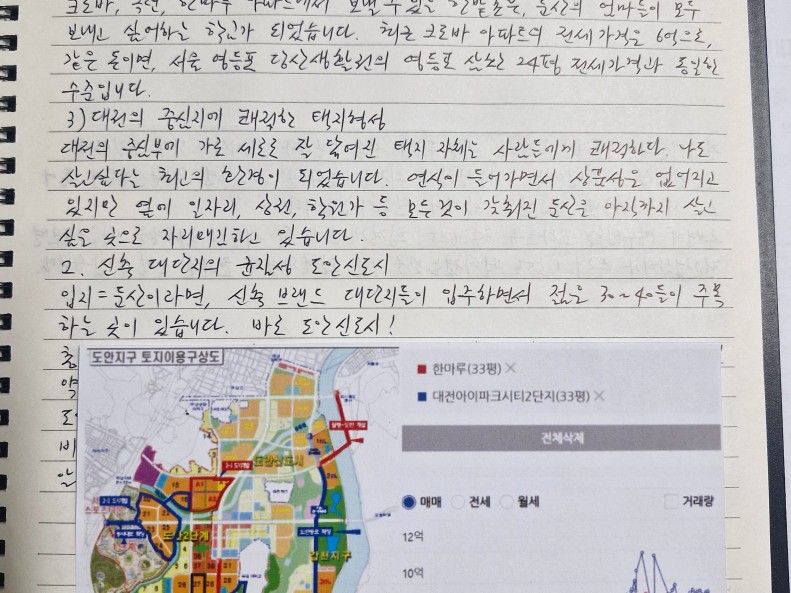 크로바, 목련, 한마루 아파트에서 보낼 수 있는 한밭초는, 둔산의 엄마들이 모두
보내고 싶어하는 학교가 되었습니다. 최근 크로바 아파트의 전세가격은 6억으로,
같은 돈이면, 서울 영등포 당산생활권의 영등포 삼환 24평 전세가격과 동일한
수준입니다.
3) 대전의 중심지에 쾌적한 택지형성
대전의 중심부에 가로 세로로 잘 닦여진 택지 자체는 사람들에게 쾌적하다. 나도
살고싶다는 최고의 환경이 되었습니다. 연식이 들어가면서 상품성은 없어지고
있지만 옆에 일자리, 상권, 학원가 등 모두 것이 갖춰진 둔산을 아직까지 살고
싶은 곳으로 자리매김하고 있습니다.
2. 신축 대단지의 균질성 도안신도시
입지=둔산이라면, 신축 브랜드 대단지들이 입주하면서 젊은 30~40들이 주목
하는 곳이 있습니다. 바로 도안신도시!
도안지구 토지이용구상도
한마루(33평) ×
대전아이파크시티2단지(33평) ×
전체삭제
매매 전세 월세 거래량
12억
10억
도안신도시
도안2단계
갑천지구